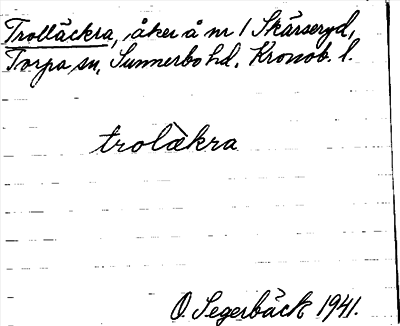 Trolläckra, åker å nr 1 Skärseryd,
Torpa sn, Sunnerbo hd, Kronob. l.
trolàkra
O. Segerbäck 1941.